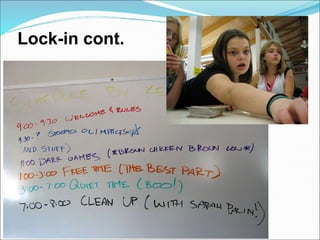 Lock-in cont.
SCHEDULE BY KE
9:00-9:30 WELCOME & RULES
9:30-? STUPID OLIMPICS
(AND STUFF)
11:00 DARK GAMES (*BROWN CHICKEN BROWN COW*)
1:00-3:00 FREE TIME (THE BEST PART)
3:00-7:00 QUIET TIME (BOO!)
7:00-8:00 CLEAN UP (WITH SARAH PALIN!)